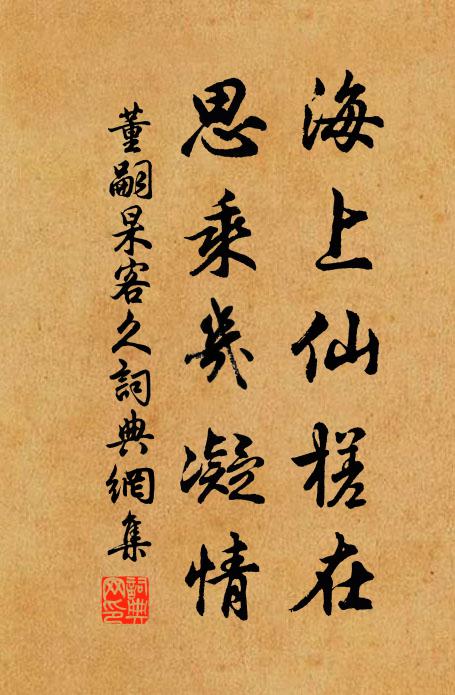 海上仙槎在
思乘幾凝情
董嗣杲客久詞典網集
詞典網印